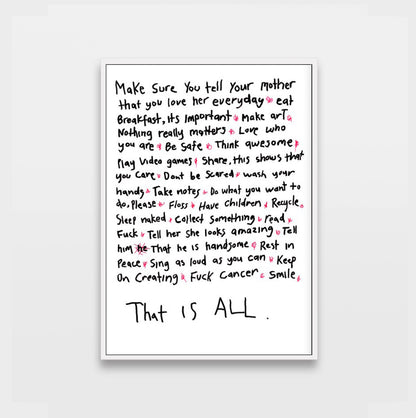 Make Sure You tell Your Mother
that you love her everyday * eat
Breakfast, its Important * Make art *
Nothing really matters * Love who
you are * Be Safe * Think awesome *
Play Video games * Share, this shows that
you Care * Dont be Scared * wash your
hands * Take notes * Do what you want to
do, Please * Floss * Have Children * Recycle *
Sleep naked * Collect Something * read *
Fuck * Tell her She looks amazing * Tell
him he That he is handsome * Rest in
Peace * Sing as loud as you can * Keep
On Creating * Fuck Cancer * Smile *
That IS ALL.